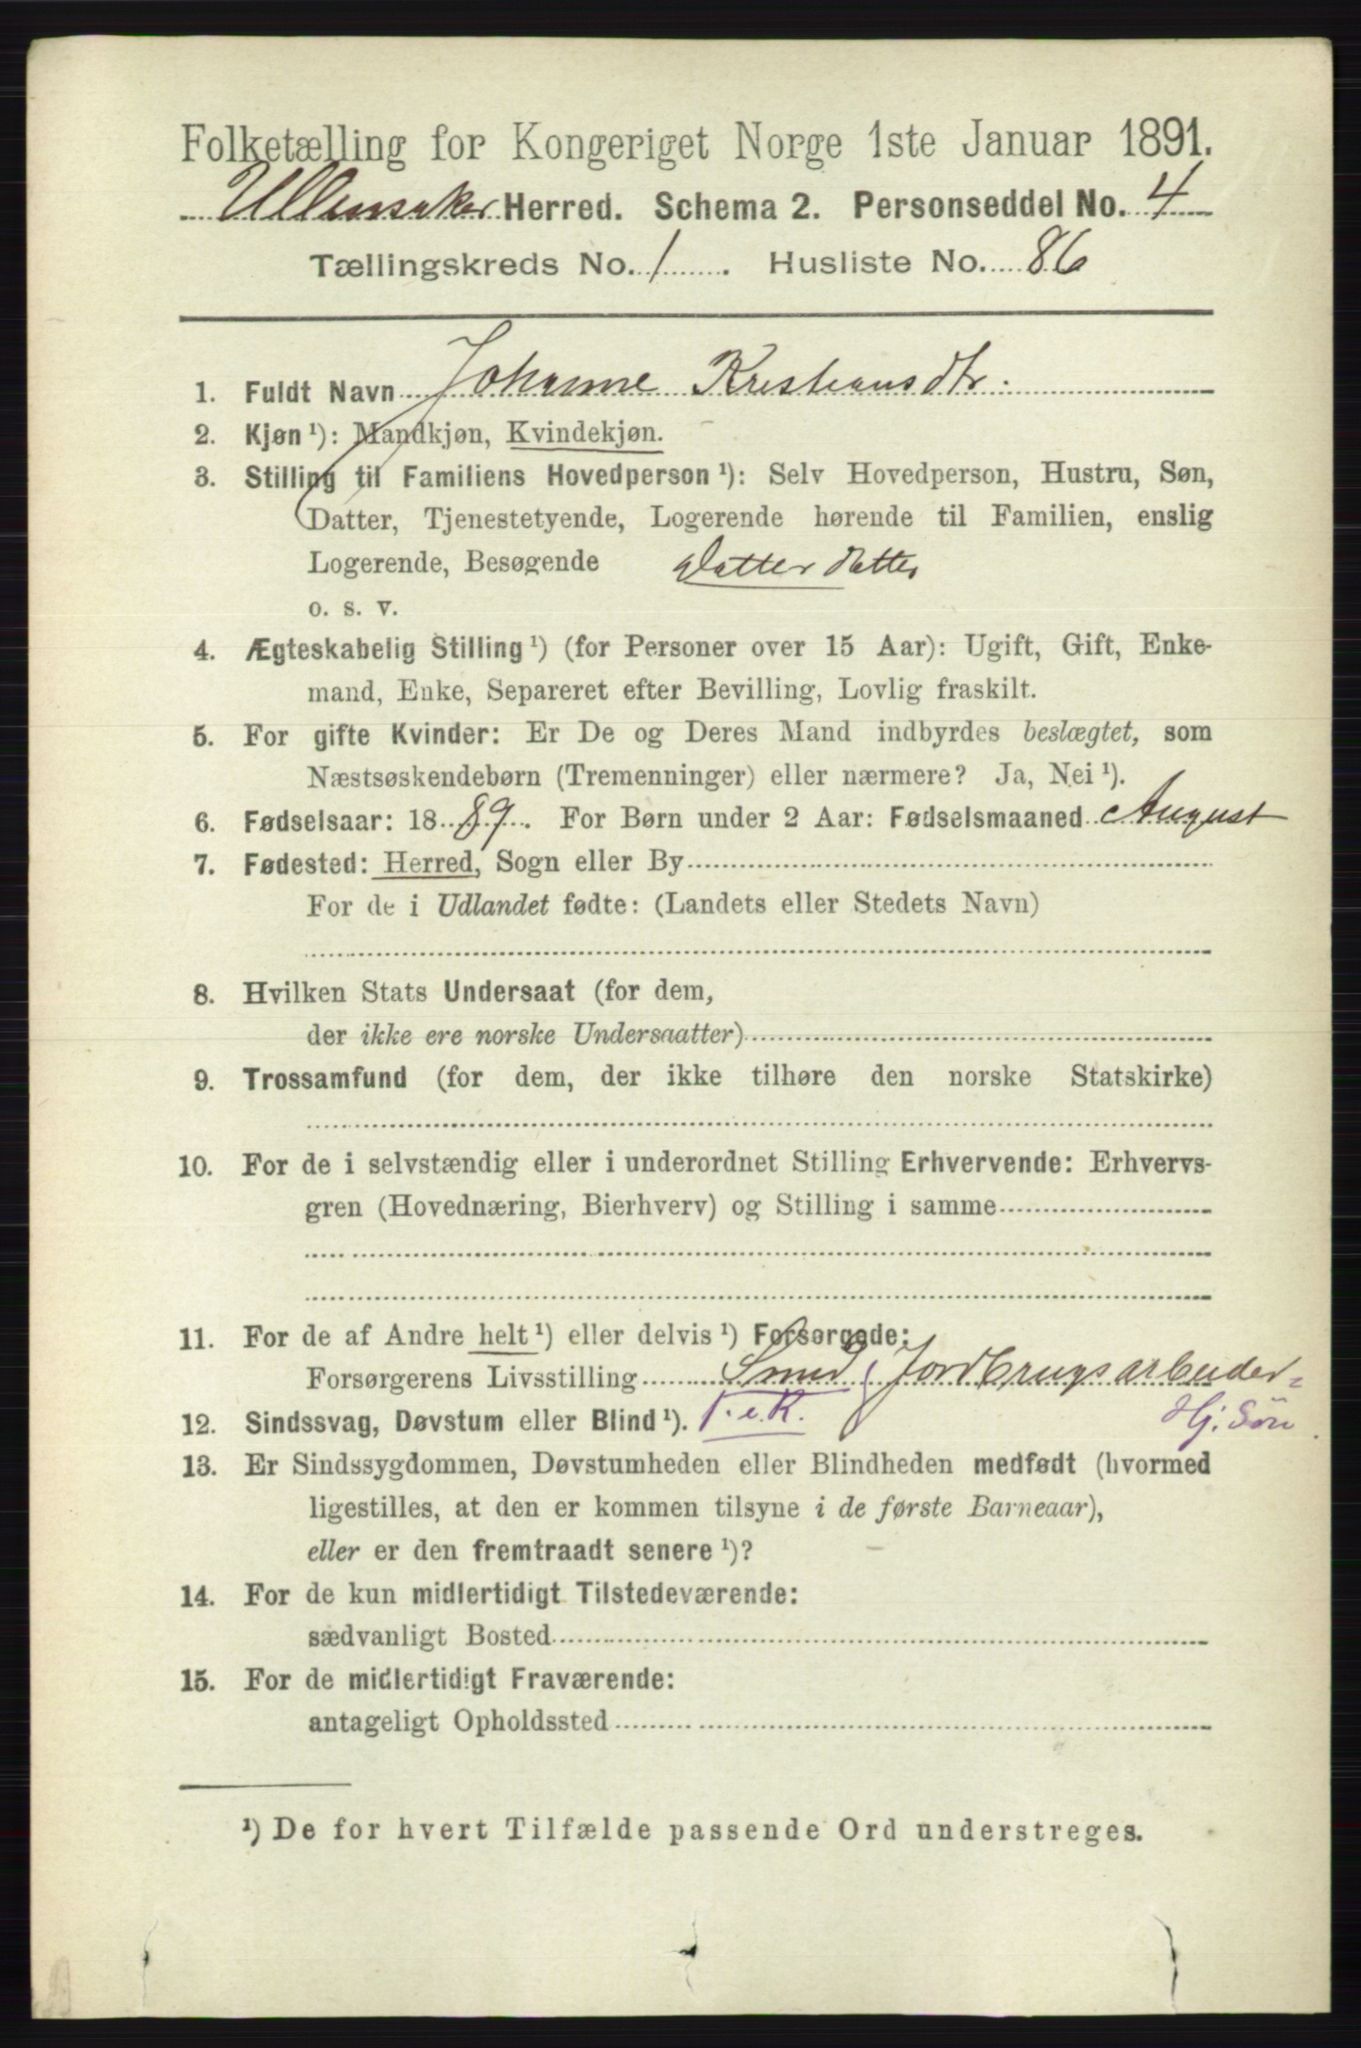 Folketælling for Kongeriget Norge 1ste Januar 1891.
Ullensaker Herred. Schema 2. Personseddel No. 4
Tællingskreds No. 1. Husliste No. 86
1. Fuldt Navn Johanne Kristiansdtr.
2. Kjøn ¹): Mandkjøn, Kvindekjøn.
3. Stilling til Familiens Hovedperson ¹): Selv Hovedperson, Hustru, Søn,
Datter, Tjenestetyende, Logerende hørende til Familien, enslig
Logerende, Besøgende Datter datter
o. s. v.
4. Ægteskabelig Stilling ¹) (for Personer over 15 Aar): Ugift, Gift, Enke-
mand, Enke, Separeret efter Bevilling, Lovlig fraskilt.
5. For gifte Kvinder: Er De og Deres Mand indbyrdes beslægtet, som
Næstsøskendebørn (Tremenninger) eller nærmere? Ja, Nei ¹).
6. Fødselsaar: 1889. For Børn under 2 Aar: Fødselsmaaned August
7. Fødested: Herred, Sogn eller By
For de i Udlandet fødte: (Landets eller Stedets Navn)
8. Hvilken Stats Undersaat (for dem,
der ikke ere norske Undersaatter)
9. Trossamfund (for dem, der ikke tilhøre den norske Statskirke)
10. For de i selvstændig eller i underordnet Stilling Erhvervende: Erhvervs-
gren (Hovednæring, Bierhverv) og Stilling i samme
11. For de af Andre helt ¹) eller delvis ¹) Forsørgede:
Forsørgerens Livsstilling Smed, Jordbrugsarbeider
12. Sindssvag, Døvstum eller Blind ¹). Hj. Søn
13. Er Sindssygdommen, Døvstumheden eller Blindheden medfødt (hvormed
ligestilles, at den er kommen tilsyne i de første Barneaar),
eller er den fremtraadt senere ¹)?
14. For de kun midlertidigt Tilstedeværende:
sædvanligt Bosted
15. For de midlertidigt Fraværende:
antageligt Opholdssted
¹) De for hvert Tilfælde passende Ord understreges.